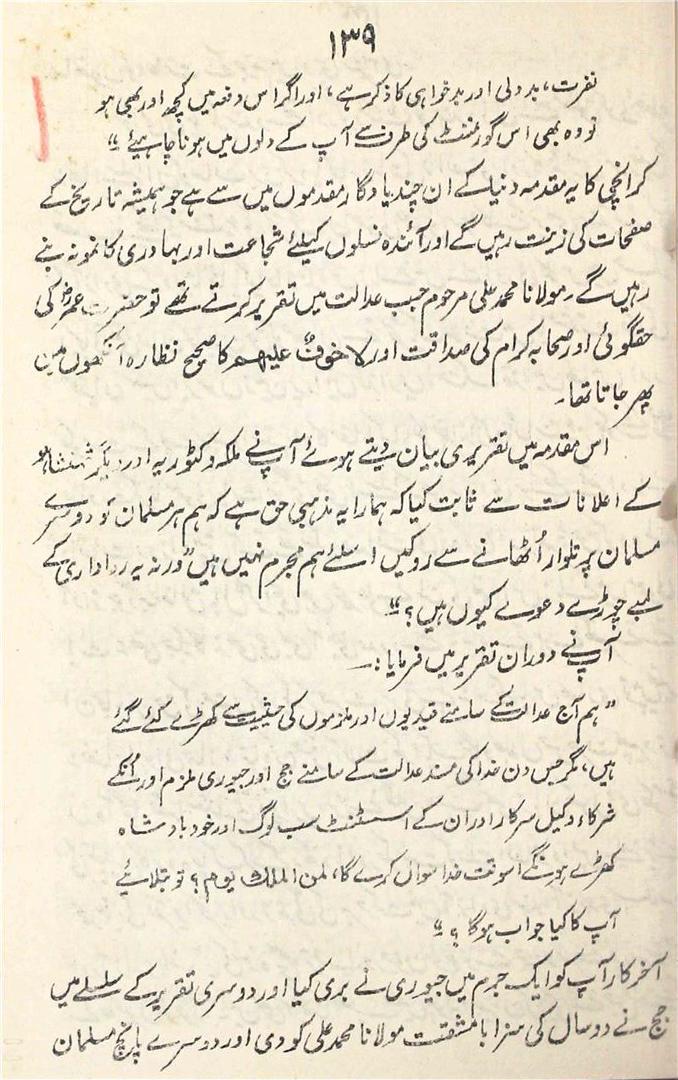 ۱۳۹
نفرت، بددلی اور بدخواہی کا ذکر ہے، اور اگر اس دفعہ میں کچھ اور بھی ہو
تو وہ بھی اس گورنمنٹ کی طرف سے آپ کے دلوں میں ہونا چاہیئے"
کرانچی کا یہ مقدمہ دنیا کے ان چند یادگار مقدموں میں سے ہے جو ہمیشہ تاریخ کے
صفحات کی زینت رہیں گے اور آئندہ نسلوں کیلئے شجاعت اور بہادری کا نمونہ بنے
رہیں گے۔ مولانا محمد علی مرحوم جب عدالت میں تقریر کرتے تھے تو حضرت عمرؓ کی
حقگوئی اور صحابہ کرام کی صداقت اور لاخوفٌ علیہم کا صحیح نظارہ آنکھوں میں
پھر جاتا تھا۔
اس مقدمہ میں تقریری بیان دیتے ہوئے آپ نے ملکہ وکٹوریہ اور دیگر شہنشاہو
کے اعلانات سے ثابت کیا کہ ہمارا یہ مذہبی حق ہے کہ ہم ہر مسلمان کو دوسرے
مسلمان پر تلوار اُٹھانے سے روکیں اسلئے ہم مجرم نہیں ہیں "ورنہ یہ رواداری کے
لمبے چوڑے دعوے کیوں ہیں؟"
آپ نے دوران تقریر میں فرمایا:۔
"ہم آج عدالت کے سامنے قیدیوں اور ملزموں کی حیثیت سے کھڑے کئے گئے
ہیں، مگر جس دن خدا کی مسند عدالت کے سامنے جج اور جیوری ملزم اور اُنکے
شرکاء وکیل سرکار اور ان کے اسسٹنٹ سب لوگ اور خود بادشاہ
کھڑے ہونگے اسوقت خدا سوال کرے گا، لمن الملک یوم؟ تو بتلایئے
آپ کا کیا جواب ہوگا؟"
آخر کار آپ کو ایک جرم میں جیوری نے بری کیا اور دوسری تقریر کے سلسلے میں
جج نے دو سال کی سزا با مشقت مولانا محمد علی کو دی اور دوسرے پانچ مسلمان